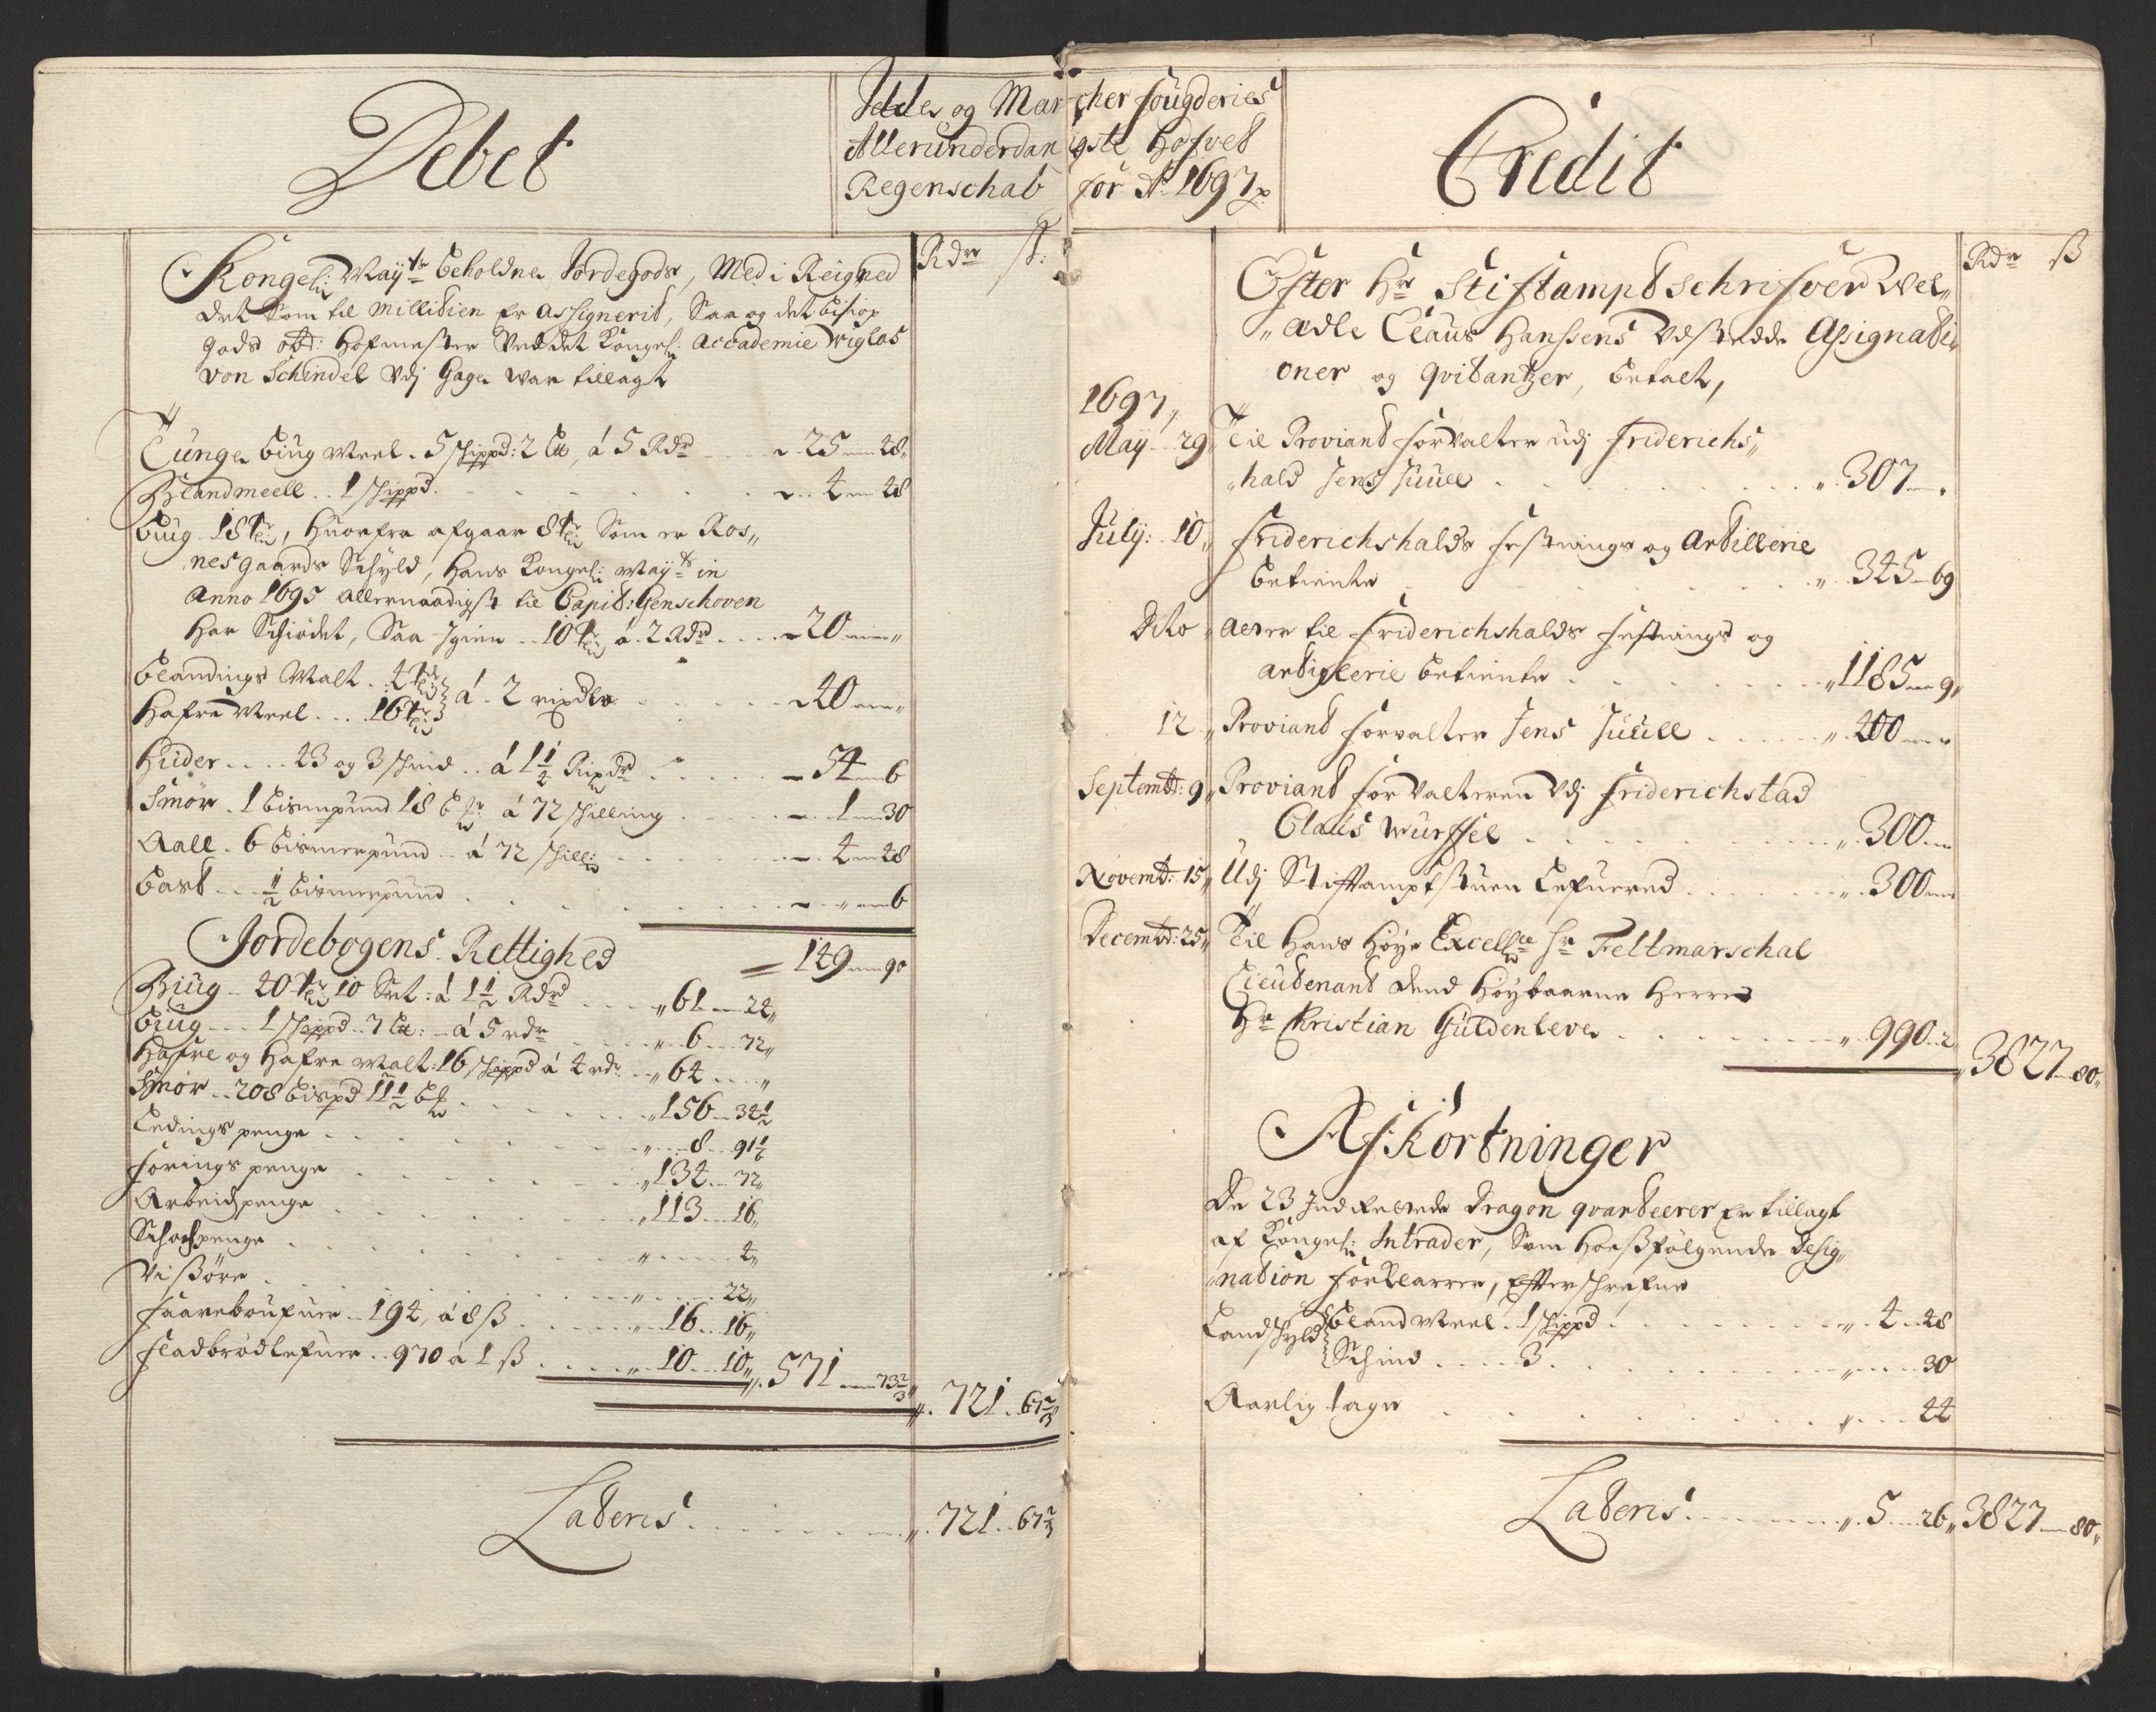 Debet
Idde og Marcher fougderies
Allerunderdanigste Hofved
Regenschab for Ao 1697
Credit
Rdr ß:
Kongel: Mayts beholdne Jordegods, Med i Reigned
det Som til Millitien er Assignerit, Saa og det bisiop
gods Hofmester Ved det Kongel: Accademie Wiglas
von Schindel Vdj Gage war tillagt
Tunge biug Meel . 5 schippd: 2 Ltt, á 5 Rdr 25 48
Blandmeell . . 1 schippd . 4 48
Biug . 18 tr, huorfra afgaar 8 tr Som er Ros„
nes gaards Schyld, hans Kongel: Mayts in
Anno 1695 allernaadigst til Capit: Genschoven
har Schiødet, Saa Igien . . 10 tr á . 2 Rdr . . . 20
blandings Malt . 4 tr
Hafre Meel . . . 16 tr á . 2 rixdlr 40
Huder . . . . 23 og 3 schind . . á 1 1/2 Rixdr . 54 6
Smør . 1 bismerpund 18 á 72 schilling 1 30
Aall . 6 bismerpund . . á 72 schill: 4 48
bast . . . 1/2 bismerpund 6
Jordebogens Rettighed 149 90
Biug . . 40 tr 10 Set: á 1 1/2 Rdr „ 61 24„
biug . . . 1 schippd . 7 Ltt: . . á 5 rdr „ 6 72„
Hafre og Hafre Malt: 16 schippd á 4 rdr „ 64 „
Smør . . 208 bispd 11 1/2 „ 156 34 1/2
Ledings penge 8 91 1/6
Forings penge „ 134 72„
Arbeidspenge „ 113 16„
Schochpenge „ 4„
Vißøre „ 22„
Faareboufuer . . 194, á 8 ß „ 16 16„
Fladbrødlefuer . . 970 á 1 ß . . . . „ 10 10„ „ 571 73 2/3 „ 721 67 2/3
Lateris „ 721 67 2/3
Rdr ß
Efter Hr Stiftamptschrifver Wel„
„ædle Claus Hanssens Vdstedde Assignati„
oner og qvitantzer, betalt,
1697„
Maij 29„ Til Proviant forvalter udj Friderichs„
„hald Jens Juuel „ 307
July: 10„ Friderichshalds festnings og Artillerie
betiente „ 345 69
Dito „ aer er til Friderichshalds festnings og
artiglerie betiente „ 1185 9„
12„ Proviant forvalter Jens Juull „ 400
Septembr: 9„ Proviant forvalteren Vdj Friderichstad
Claus Wurffel „ 300
Novembr: 15„ Udj Stiftamptstuen lefuered „ 300
Decembr: 25„ Til Hans Høye Excellce Hr Feltmarschal
Lieutenant dend Høybaarne Herre
Hr Christian Guldenleve „ 990 2 „ 3827 80„
Afkortninger
De 23 Indreserede dragon qvarteerer er tillagt
af Kongel: Intrader, Som hoesfølgende desig„
„nation forklarrer, Efterschrefne
Landschyld blandmeel . 1 schippd „ 4 48
Schind . . . . 3 „ 30
Aarlig tage „ 44
Lateris „ 5 26„ 3827 80„